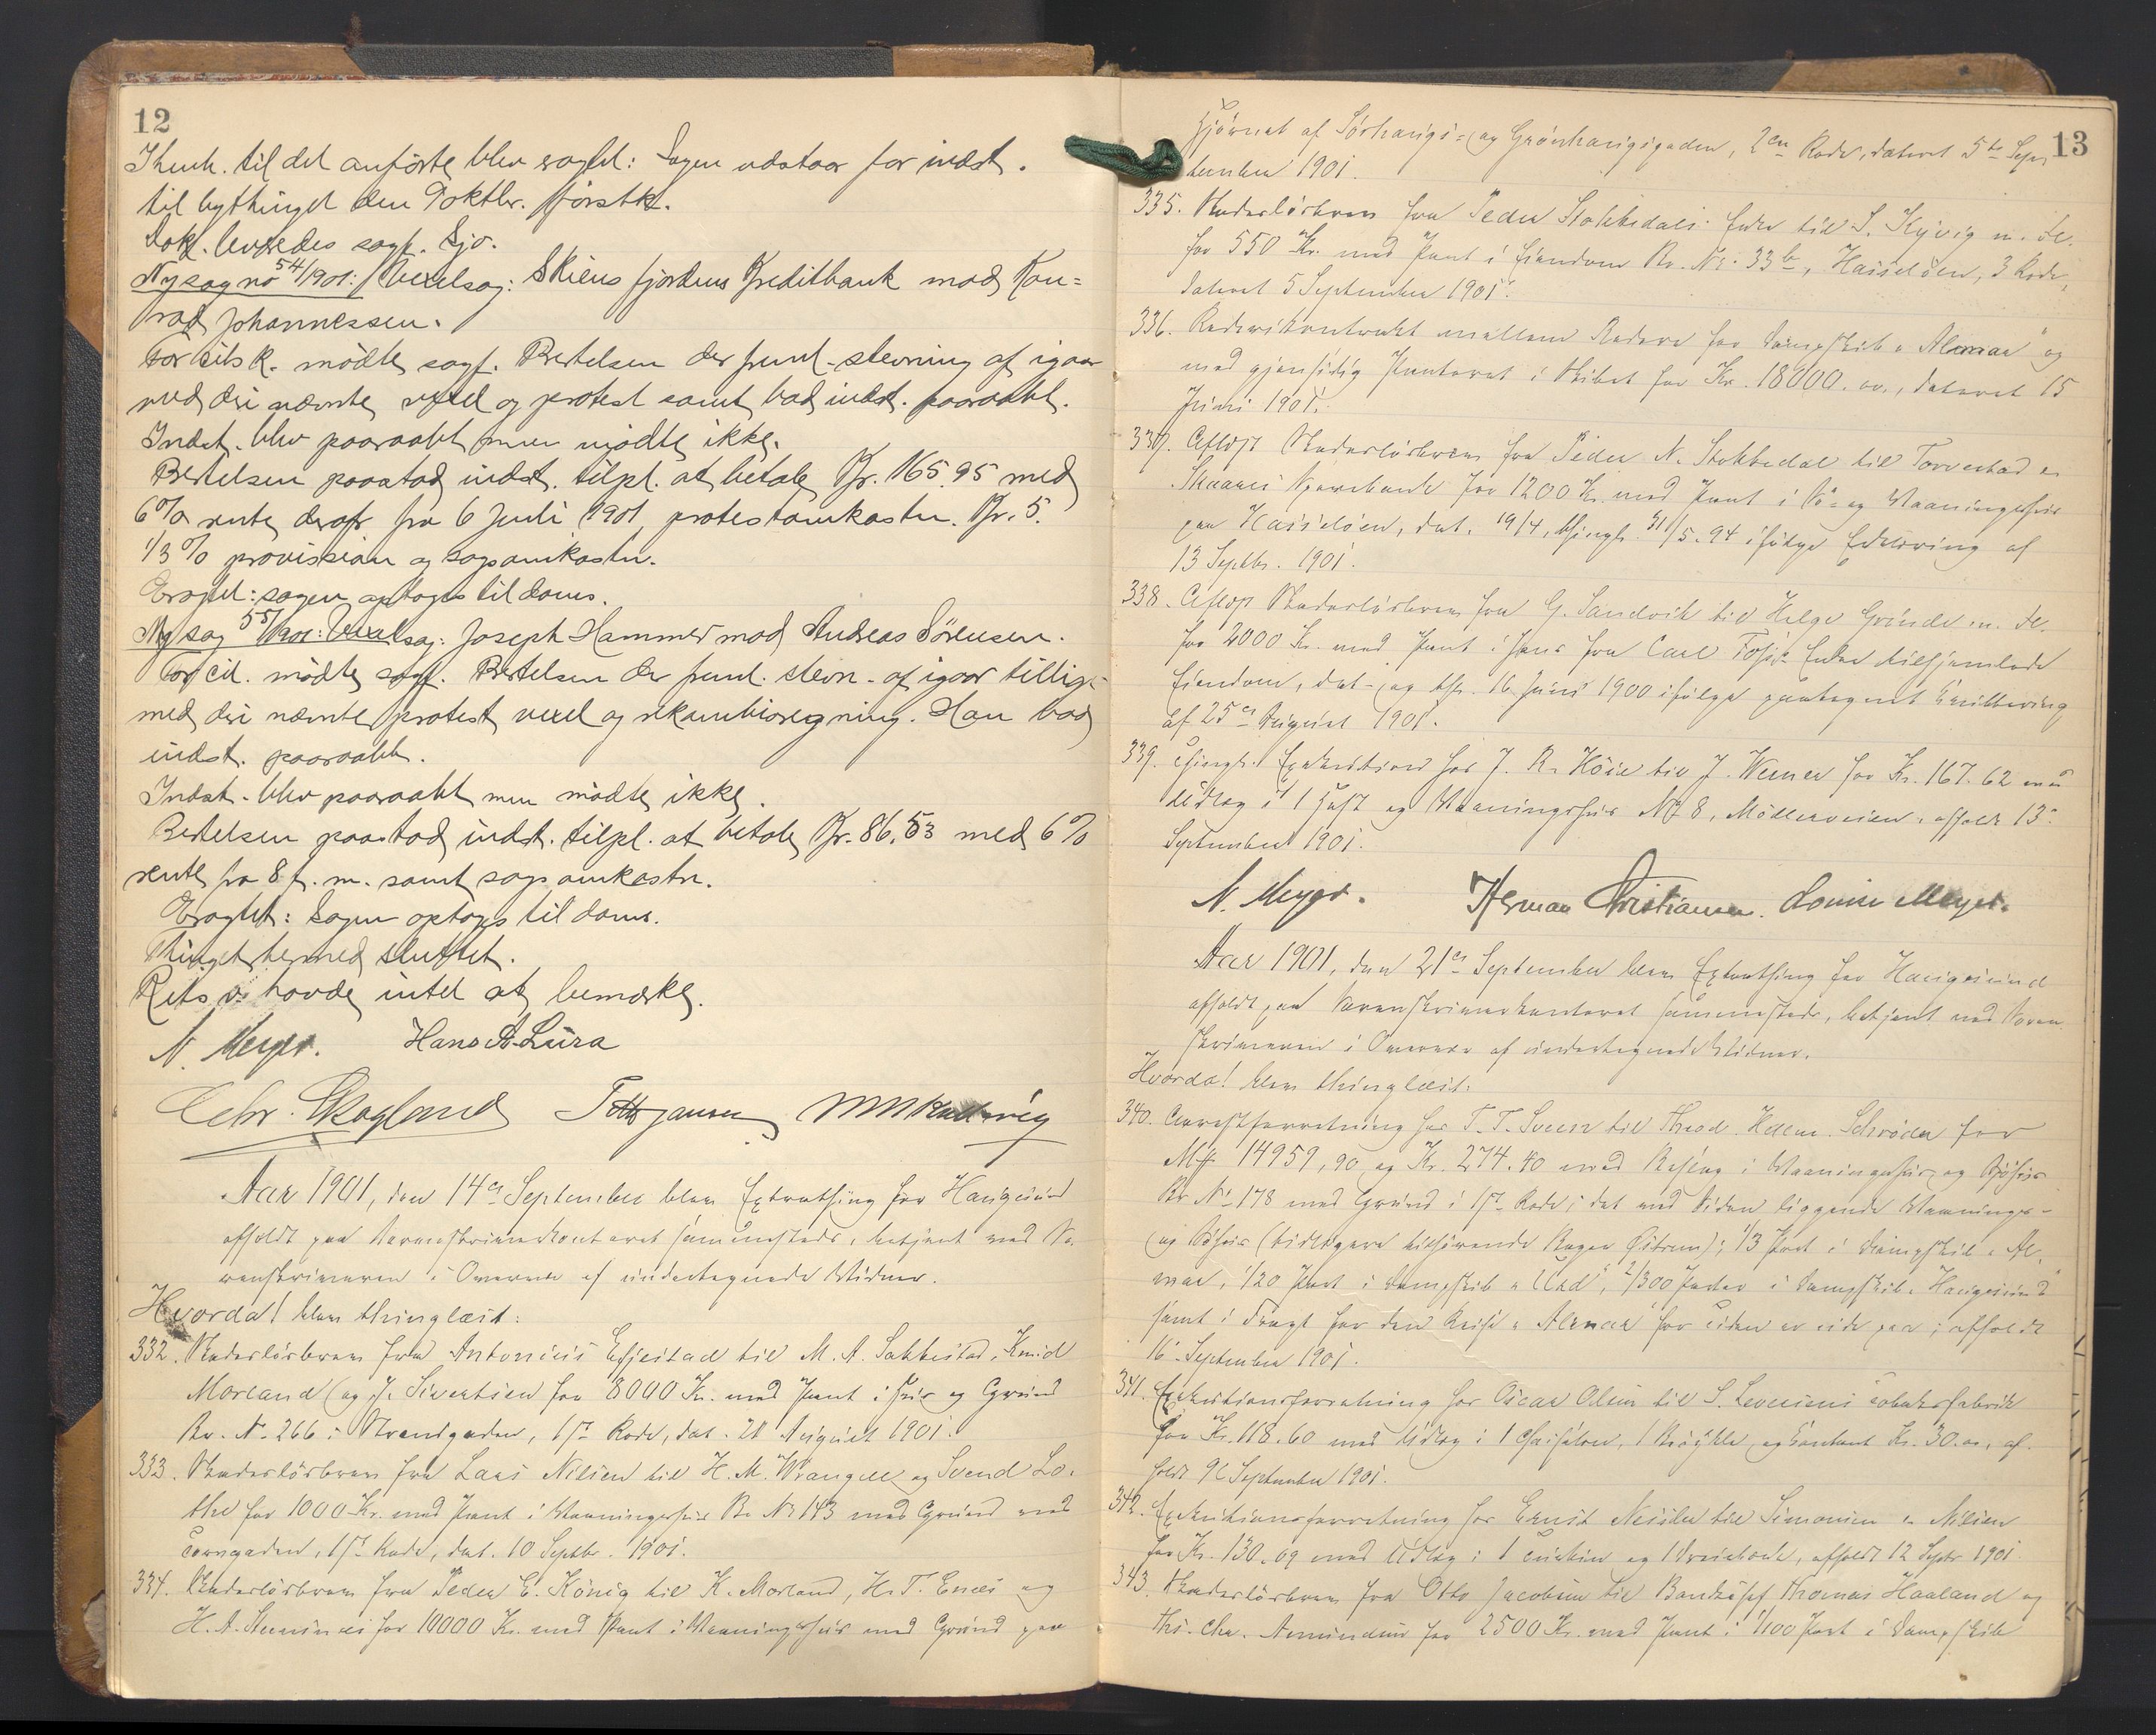 12
I henh. til det anførte blev eragtet: Sagen udstaar for indst.
til bythinget den 9 oktbr. førstk.
Dok. leveredes sagf. Sjo.
Ny sag no 54/1901: Vexelsag: Skiensfjordens Kreditbank mod Kon=
rad Johannessen.
For cits k. mødte sagf. Bertelsen der freml. stevning af igaar
med deri nævnte vexel og protest samt bad indst. paaraabt.
Indst. blev paaraabt men mødte ikke.
Bertelsen paastod indst. tilpl. at betale Kr. 165.95 med
6% rente deraf fra 6 Juli 1901, protestomkostn. Kr. 5.
1/3% provision og sagsomkostn.
Eragtet: sagen optages til doms.
Ny sag 55/1901: Vexelsag: Joseph Hammer mod Andreas Sørensen.
For cit. mødte sagf. Bertelsen der freml. stevn. af igaar tillige
med deri nævnte protest, vexel og rekambioregning. Han bad
indst. paaraabt.
Indst. blev paaraabt men mødte ikke.
Bertelsen paastod indst. tilpl. at betale Kr. 86.53 med 6%
rente fra 8 f. m. samt sagsomkostn.
Eragtet: Sagen optages til doms.
Thinget hermed sluttet.
Rets v. havde intet at bemærke.
N. Meyer. Hans A. Lura
Chr. Skogland
Aar 1901, den 14de September blev Extrathing for Haugesund
afholdt paa Sorenskriverkontoret sammesteds, betjent med So-
renskriveren i Overvær af undertegnede Vidner.
Hvorda! blev thinglæst:
332. Skadesløsbrev fra Antonius Espestad til M. A. Sakkestad, Knud
Morland og J. Sivertsen for 8000 Kr. med Pant i Hus og Grund
Br. No 266 i Strandgaden, 1ste Rode, dat. 20 August 1901.
333. Skadesløsbrev fra Lars Nilsen til H. M. Wrangell og Svend Lo-
the for 1000 Kr. med Pant i Vaaningshus Br. No 143 med Grund ved
Torvgaden, 1ste Rode, dat. 10 Septbr. 1901.
334. Skadesløsbrev fra Peder E. König til K. Morland, H. T. Enæs og
H. A. for 10000 Kr. med Pant i Vaaningshus med Grund paa
13
Hjørnet af Sørhaugs- og Grønhaugsgaden, 2den Rode, dateret 5te Sep-
tember 1901.
335. Skadesløsbrev fra Peder Stokkedals Enke til S. Kyvig m. fl.
for 550 Kr. med Pant i Eiendom Br. No. 33b, Hasseløen, 3 Rode,
dateret 5 September 1901.
336. Rederikontrakt mellem Redere for Dampskib "Alemar" og
med gjensidig Panteret i Skibet for Kr. 18000.00, dateret 15
Juni 1901.
337. Aflyst Skadesløsbrev fra Peder N. Stokkedal til Torvestad &
Skaares Sparebank for 1200 Kr. med Pant i Sø- og Vaaningshus
paa Hasseløen, dat. 19/4, thingl. 31/5. 94 ifølge Erklæring af
13 Septbr. 1901.
338. Aflyst Skadesløsbrev fra G. Sandvik til Helge Grinde m. fl.
for 2000 Kr. med Pant i hans fra Carl Enke tilhjemlede
Eiendom, dat. og thl. 16 Juni 1900 ifølge paategnet Kvittering
af 25de August 1901.
339. Thingl. Exekution hos J. R. Höie til J. Werner for Kr. 167.62 med
Udlæg i 1 Hest og Vaaningshus No 8, Møllerveien, afholdt 13de
September 1901.
N. Meyer. Herman Christiansen. Lovise Meyer.
Aar 1901, den 21de September blev Extrathing for Haugesund
afholdt paa Sorenskriverkontoret sammesteds, betjent med Soren-
skriveren i Overvær af undertegnede Vidner.
Hvorda! blev thinglæst:
340. Arrestforretning hos T. T. Sveen til Theod. Schrøder for
Mk 14959,90 og Kr. 274.40 med Beslag i Vaaningshus og Søhus
Br. No 178 med Grund i 1ste Rode; det ved Siden liggende Vaanings-
og Søhus (tidligere tilhørende Østrem); 1/3 Part i Dampskib "Ale-
mar", 1/20 Part i Dampskib "Urd", 2/300 Parter i Dampskib "Haugesund"
samt i Fragt for den Reise "Alemar" for Tiden er ude paa; afholdt
16 September 1901.
341. Exekutionsforretning hos Oscar Olsen til S. Tobaksfabrik
for Kr. 118.60 med Udlæg i 1 Chaiselon, og kontant Kr. 30.00, af-
holdt 9de September 1901.
342. Exekutionsforretning hos Ernst Nessler til Simonsen & Nilsen
for Kr. 130.09 med Udlæg i 1 og 1 Dreiebænk, afholdt 12 Septr. 1901.
343. Skadesløsbrev fra Otto Jacobsen til Bankchef Thomas Haaland og
Ths. Chr. Amundsen for 2500 Kr. med Pant i 1/100 Part i Dampskib